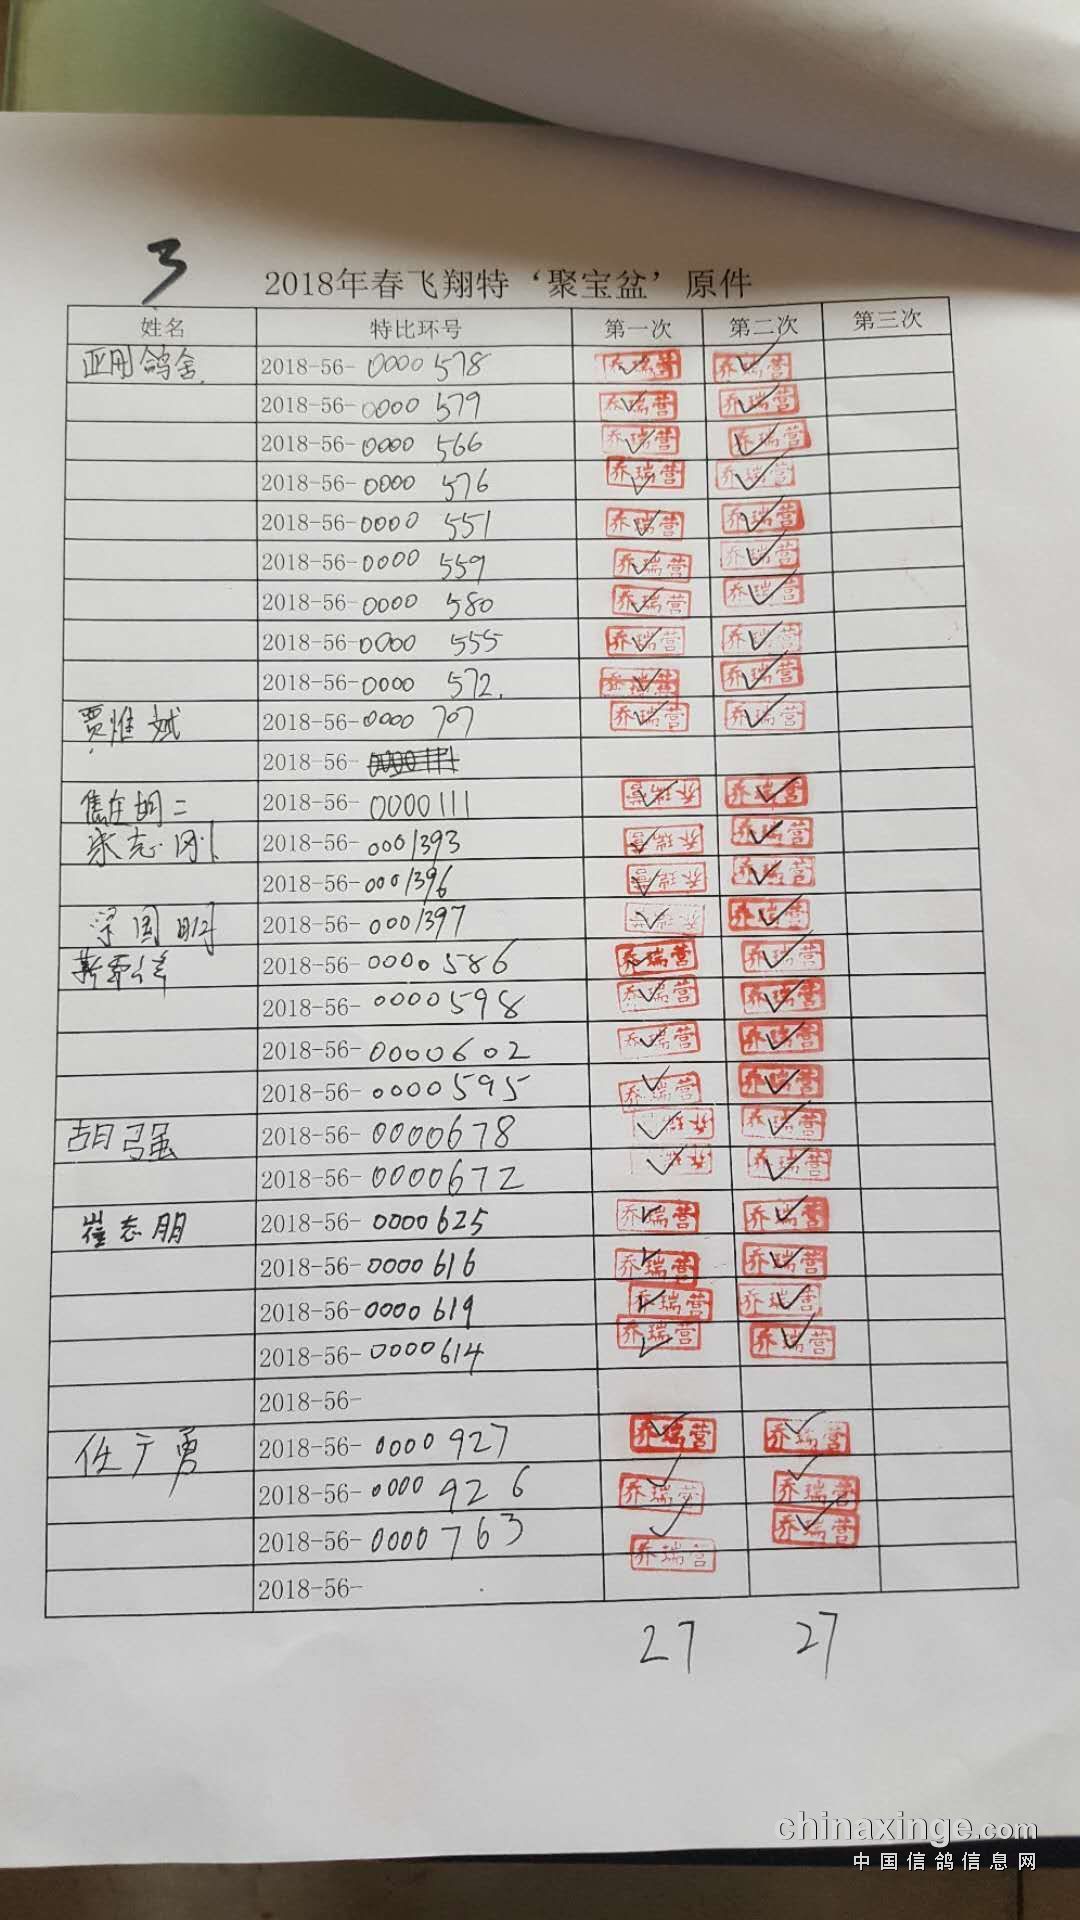 3
2018年春飞翔特‘聚宝盆’原件
姓名 特比环号 第一次 第二次 第三次
亚用鸽舍 2018-56-0000578 乔瑞营 乔瑞营
2018-56-0000579 乔瑞营 乔瑞营
2018-56-0000566 乔瑞营 乔瑞营
2018-56-0000576 乔瑞营 乔瑞营
2018-56-0000551 乔瑞营 乔瑞营
2018-56-0000559 乔瑞营 乔瑞营
2018-56-0000580 乔瑞营 乔瑞营
2018-56-0000555 乔瑞营 乔瑞营
2018-56-0000572. 乔瑞营 乔瑞营
贾维斌 2018-56-0000707 乔瑞营 乔瑞营
2018-56-
2018-56-0000111 乔瑞营 乔瑞营
志刚 2018-56-0001393 乔瑞营 乔瑞营
2018-56-0001396 乔瑞营 乔瑞营
国明 2018-56-0001397 乔瑞营 乔瑞营
2018-56-0000586 乔瑞营 乔瑞营
2018-56-0000598 乔瑞营 乔瑞营
2018-56-0000602 乔瑞营 乔瑞营
2018-56-0000595 乔瑞营 乔瑞营
胡强 2018-56-0000678 乔瑞营 乔瑞营
2018-56-0000672 乔瑞营 乔瑞营
崔志朋 2018-56-0000625 乔瑞营 乔瑞营
2018-56-0000616 乔瑞营 乔瑞营
2018-56-0000619 乔瑞营 乔瑞营
2018-56-0000614 乔瑞营 乔瑞营
2018-56-
任广勇 2018-56-0000927 乔瑞营 乔瑞营
2018-56-0000926 乔瑞营 乔瑞营
2018-56-0000763 乔瑞营 乔瑞营
2018-56-
27 27
chinaxinge.com
中国信鸽信息网